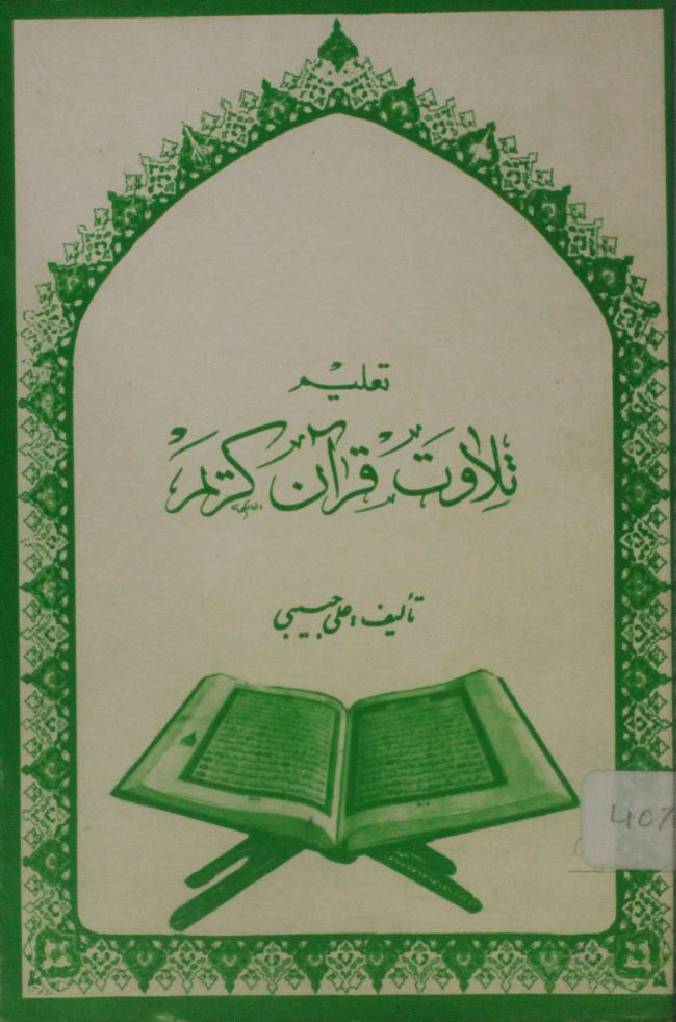 تعلیم
تِلاوَت قُرآن کَریَم
تألیف: علی حبیبی
407